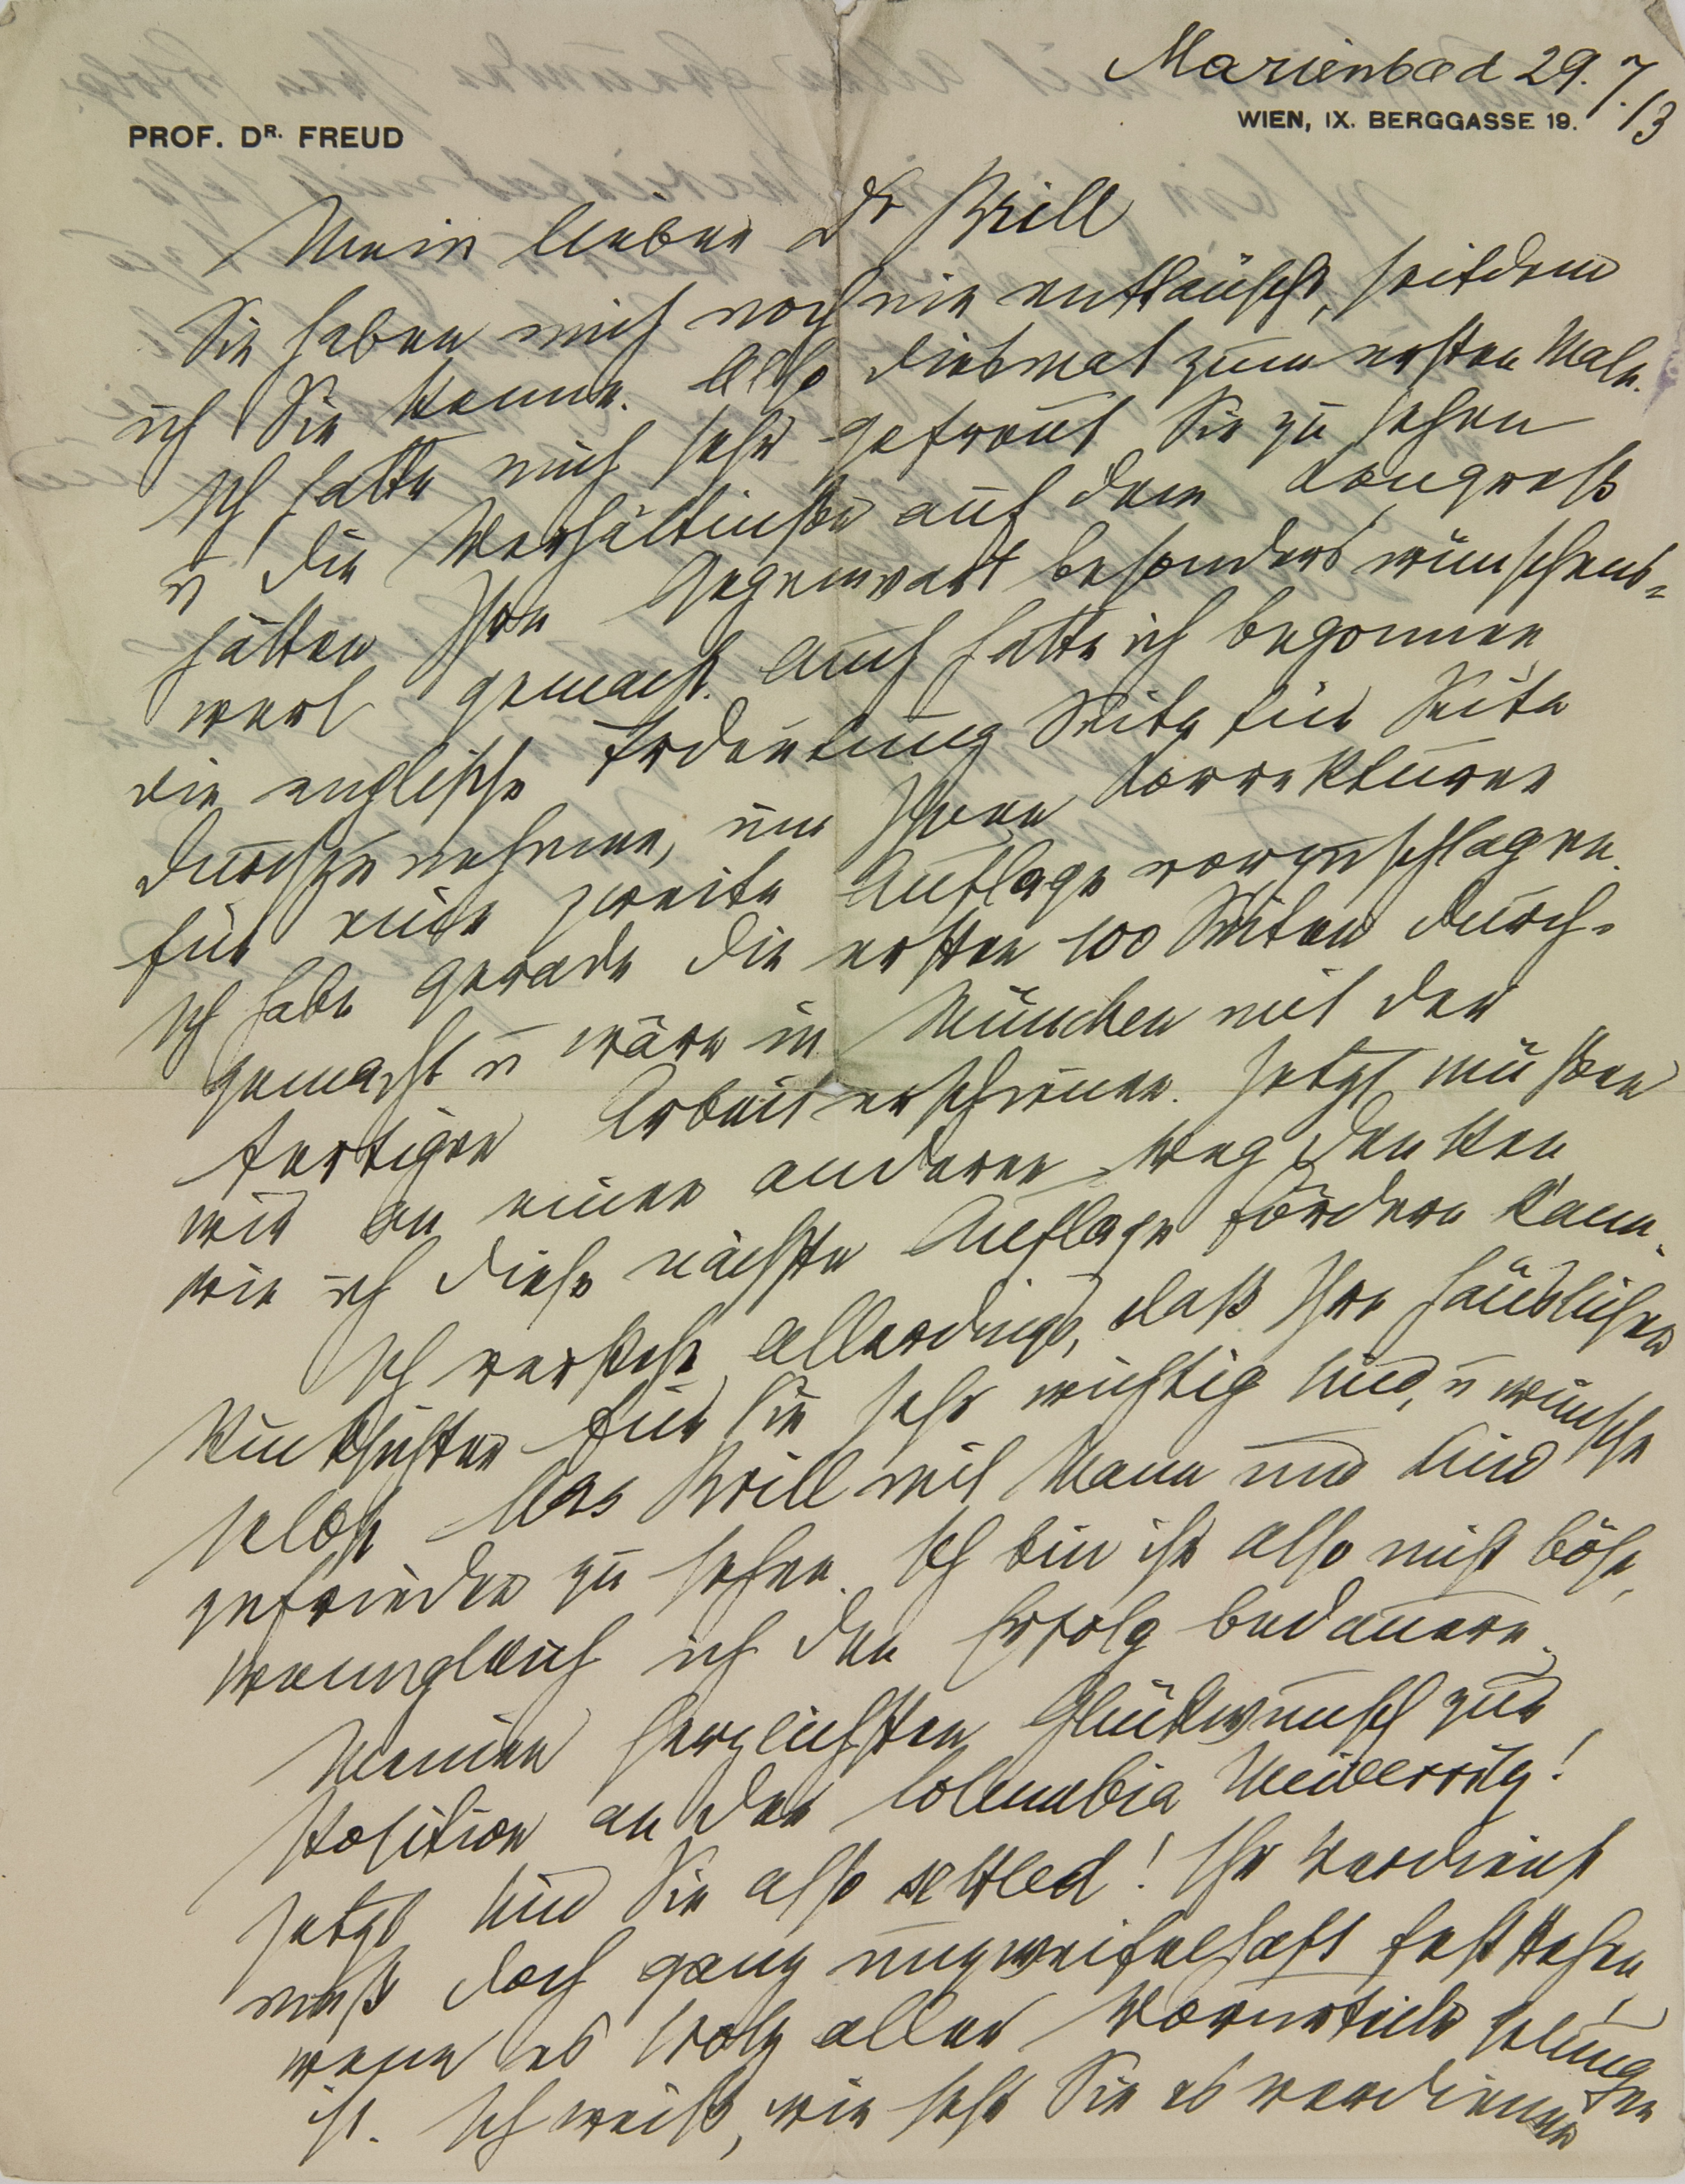 Marienbad 29.7.13
PROF. DR. FREUD
WIEN, IX. BERGGASSE 19.
Mein lieber Dr Brill
Sie haben mich noch nie enttäuscht, seitdem
ich Sie kenne. Also diesmal zum ersten Male.
Ich hatte mich sehr gefreut Sie zu sehen
u die Verhältniße auf dem Kongreß
hätten Ihre Gegenwart besonders wünschens-
wert gemacht. Auch hatte ich begonnen
die englische Trdeutung Seite für Seite
durchzunehmen, um Ihnen Korrekturen
für eine zweite Auflage vorzuschlagen.
Ich habe gerade die ersten 100 Seiten durch-
gemacht u wäre in München mit der
fertigen Arbeit erschienen. Jetzt müßen
wir an einen anderen Weg denken
wie ich diese nächste Auflage fördern kann.
Ich verstehe allerdings, daß Ihre häuslichen
Rücksichten für Sie sehr wichtig sind, u wünsche
selbst Mrs Brill mit Mann und Kind
zufrieden zu sehen. Ich bin ihr also nicht böse,
wenngleich ich den Erfolg bedauere.
Meinen herzlichsten Glückwunsch zur
Position an der Columbia University!
Jetzt sind Sie also settled! Ihr Verdienst
muß doch ganz unzweifelhaft feststehen,
wenn es trotz aller Vorurteile gelungen
ist. Ich weiß, wie sehr Sie es verdienen